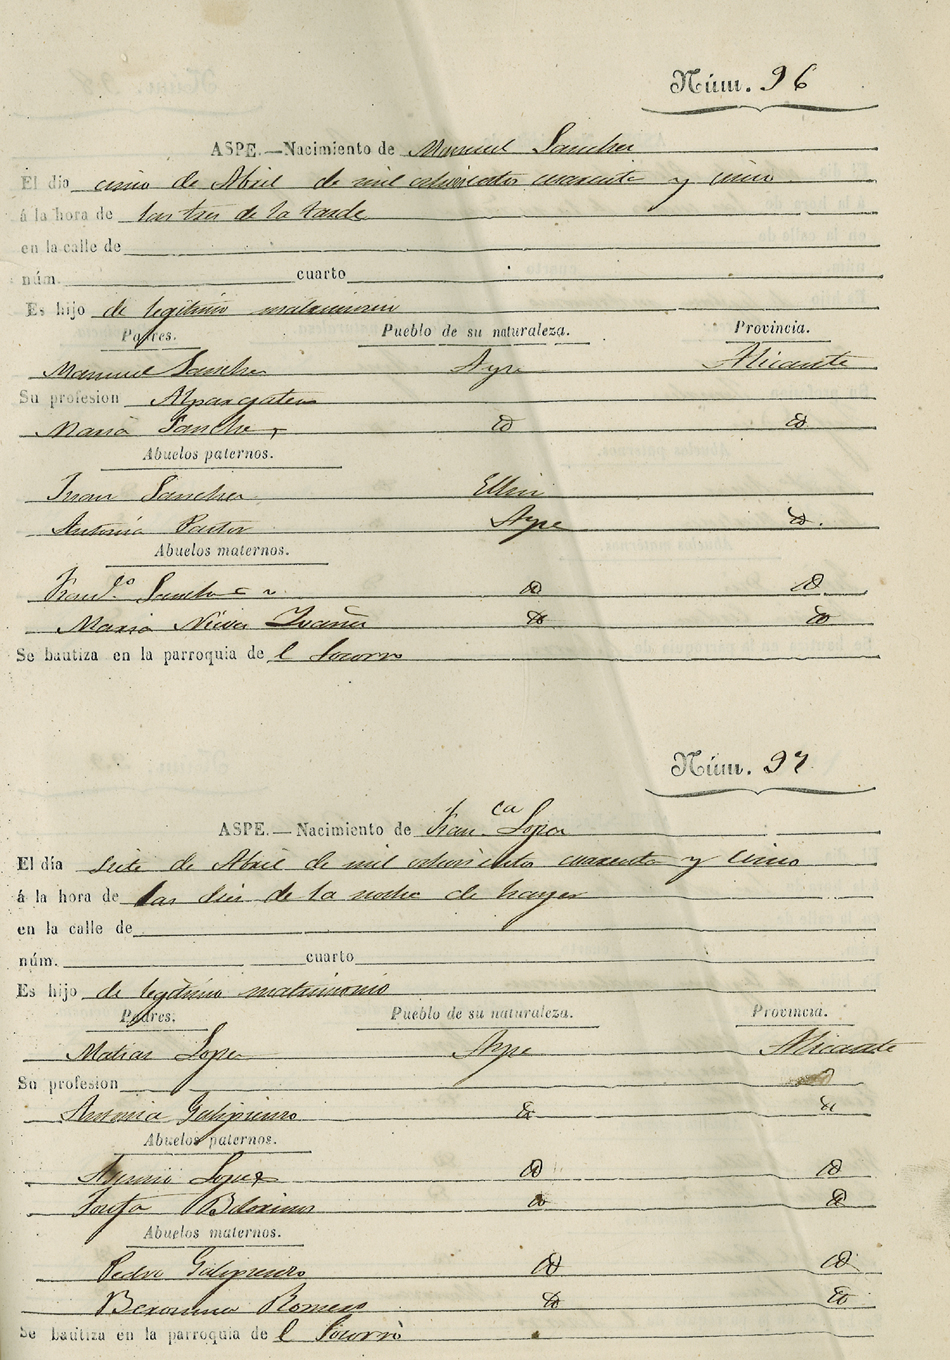 Núm. 96
ASPE.—Nacimiento de Manuel Sanchez
El dia cinco de Abril de mil ochocientos cuarenta y cinco
á la hora de las tres de la tarde
en la calle de
núm. cuarto
Es hijo de legitimo matrimonio
Padres. Pueblo de su naturaleza. Provincia.
Manuel Sanchez Aspe Alicante
Su profesion Alpargatero
Maria Sanchez id id
Abuelos paternos.
Juan Sanchez Ellin
Antonia Pastor Aspe id.
Abuelos maternos.
Franco. Sanchez id id
Maria Nieves Ybañez id id
Se bautiza en la parroquia de l Socorro
Núm. 97
ASPE.—Nacimiento de Franca Lopez
El día siete de Abril de mil ochocientos cuarenta y cinco
á la hora de las diez de la noche de hayer
en la calle de
núm. cuarto
Es hijo de legitimo matrimonio
Padres. Pueblo de su naturaleza. Provincia.
Matias Lopez Aspe Alicante
Su profesion
Antonia Galipienso id id
Abuelos paternos.
Lopez id id
Josefa id id
Abuelos maternos.
Pedro Galipienso id id
Romero id id
Se bautiza en la parroquia de l Socorro